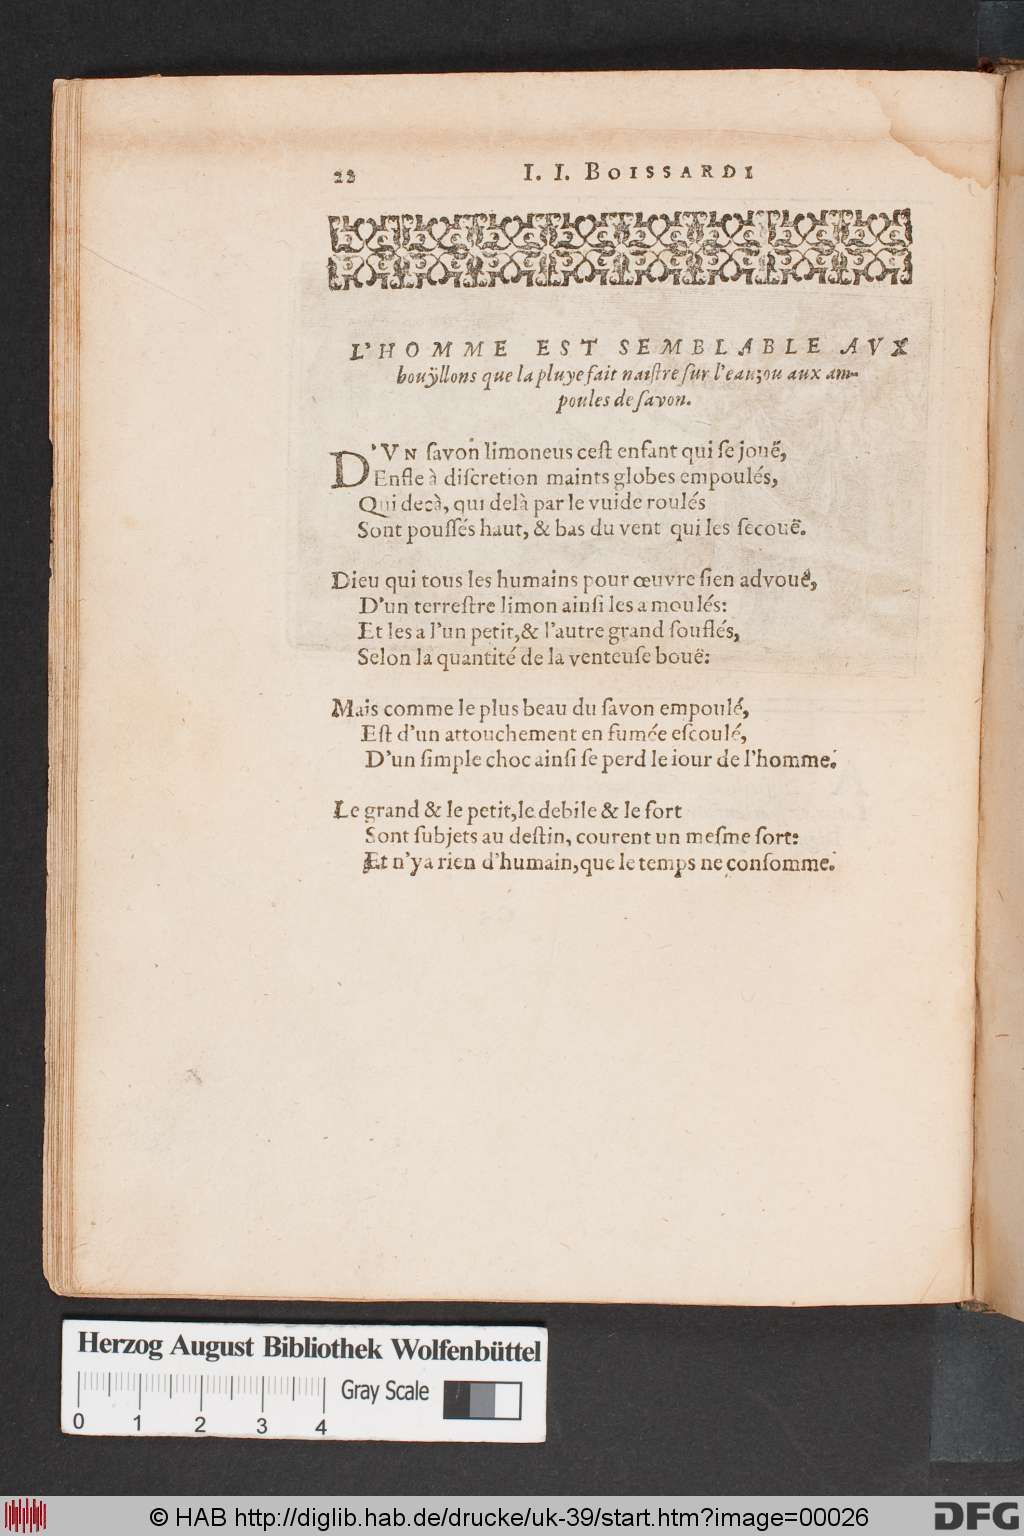 22 I. I. BOISSARDI
L'HOMME EST SEMBLABLE AVX
bouÿllons que la pluye fait naistre sur l'eau; ou aux am-
poules de savon.
D'VN savon limoneus cest enfant qui se jouë,
Enfle à discretion maints globes empoulés,
Qui deçà, qui delà par le vuide roulés
Sont poussés haut, & bas du vent qui les secouë.
Dieu qui tous les humains pour œuvre sien advouë,
D'un terrestre limon ainsi les a moulés:
Et les a l'un petit, & l'autre grand souflés,
Selon la quantité de la venteuse bouë:
Mais comme le plus beau du savon empoulé,
Est d'un attouchement en fumée escoulé,
D'un simple choc ainsi se perd le iour de l'homme.
Le grand & le petit, le debile & le fort
Sont subjets au destin, courent un mesme sort:
Et n'ya rien d'humain, que le temps ne consomme.
Herzog August Bibliothek Wolfenbüttel
Gray Scale
0 1 2 3 4
© HAB http://diglib.hab.de/drucke/uk-39/start.htm?image=00026
DFG